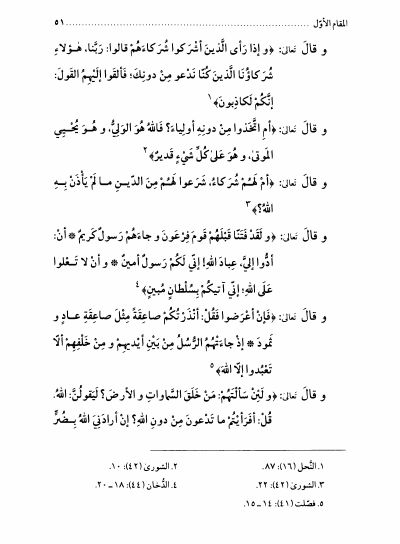 المقام الأوّل ............................................................ ٥١
و قالَ تعالىٰ: ﴿و إذا رَأى الَّذينَ أشْرَكوا شُرَكاءَهُمْ قالوا: رَبَّنا، هٰؤلاءِ
شُرَكاؤُنَا الَّذينَ كُنّا نَدْعو مِنْ دونِكَ؛ فَألقَوا إلَيْهِمُ القَولَ:
إنَّكُمْ لَكاذِبونَ﴾١
و قالَ تعالىٰ: ﴿أمِ اتَّخَذوا مِنْ دونِهِ أولِياءَ؟ فَاللهُ هُوَ الوَلِيُّ، و هُوَ يُحْيِي
المَوتىٰ، و هُوَ عَلىٰ كُلِّ شَيْءٍ قَديرٌ﴾٢
و قالَ تعالىٰ: ﴿أمْ لَهُمْ شُرَكاءُ، شَرَعوا لَهُمْ مِنَ الدّينِ ما لَمْ يَأْذَنْ بِهِ
اللهُ؟﴾٣
و قالَ تعالىٰ: ﴿و لَقَدْ فَتَنّا قَبْلَهُمْ قَومَ فِرْعَونَ و جاءَهُمْ رَسولٌ كَريمٌ * أنْ:
أدُّوا إلَيَّ، عِبادَ اللهِ! إنّي لَكُمْ رَسولٌ أمينٌ * و أنْ لا تَعْلوا
عَلَى اللهِ؛ إنّي آتيكُمْ بِسُلْطانٍ مُبينٍ﴾٤
و قالَ تعالىٰ: ﴿فَإنْ أعْرَضوا فَقُلْ: أنْذَرْتُكُمْ صاعِقَةً مِثْلَ صاعِقَةِ عادٍ و
ثَمودَ * إذْ جاءَتْهُمُ الرُّسُلُ مِنْ بَيْنِ أيْديهِمْ و مِنْ خَلْفِهِمْ ألّا
تَعْبُدوا إلّا اللهَ﴾٥
و قالَ تعالىٰ: ﴿و لَئِنْ سَألْتَهُمْ: مَنْ خَلَقَ السَّماواتِ و الأرضَ؟ لَيَقولُنَّ: اللهُ.
قُلْ: أفَرَأيْتُمْ ما تَدْعونَ مِنْ دونِ اللهِ؟ إنْ أرادَنِيَ اللهُ بِضُرٍّ
١. النَّحل (١٦): ٨٧. ٢. الشورىٰ (٤٢): ١٠.
٣. الشورىٰ (٤٢): ٢٢. ٤. الدُّخان (٤٤): ١٨ – ٢٠.
٥. فصّلت (٤١): ١٤ – ١٥.